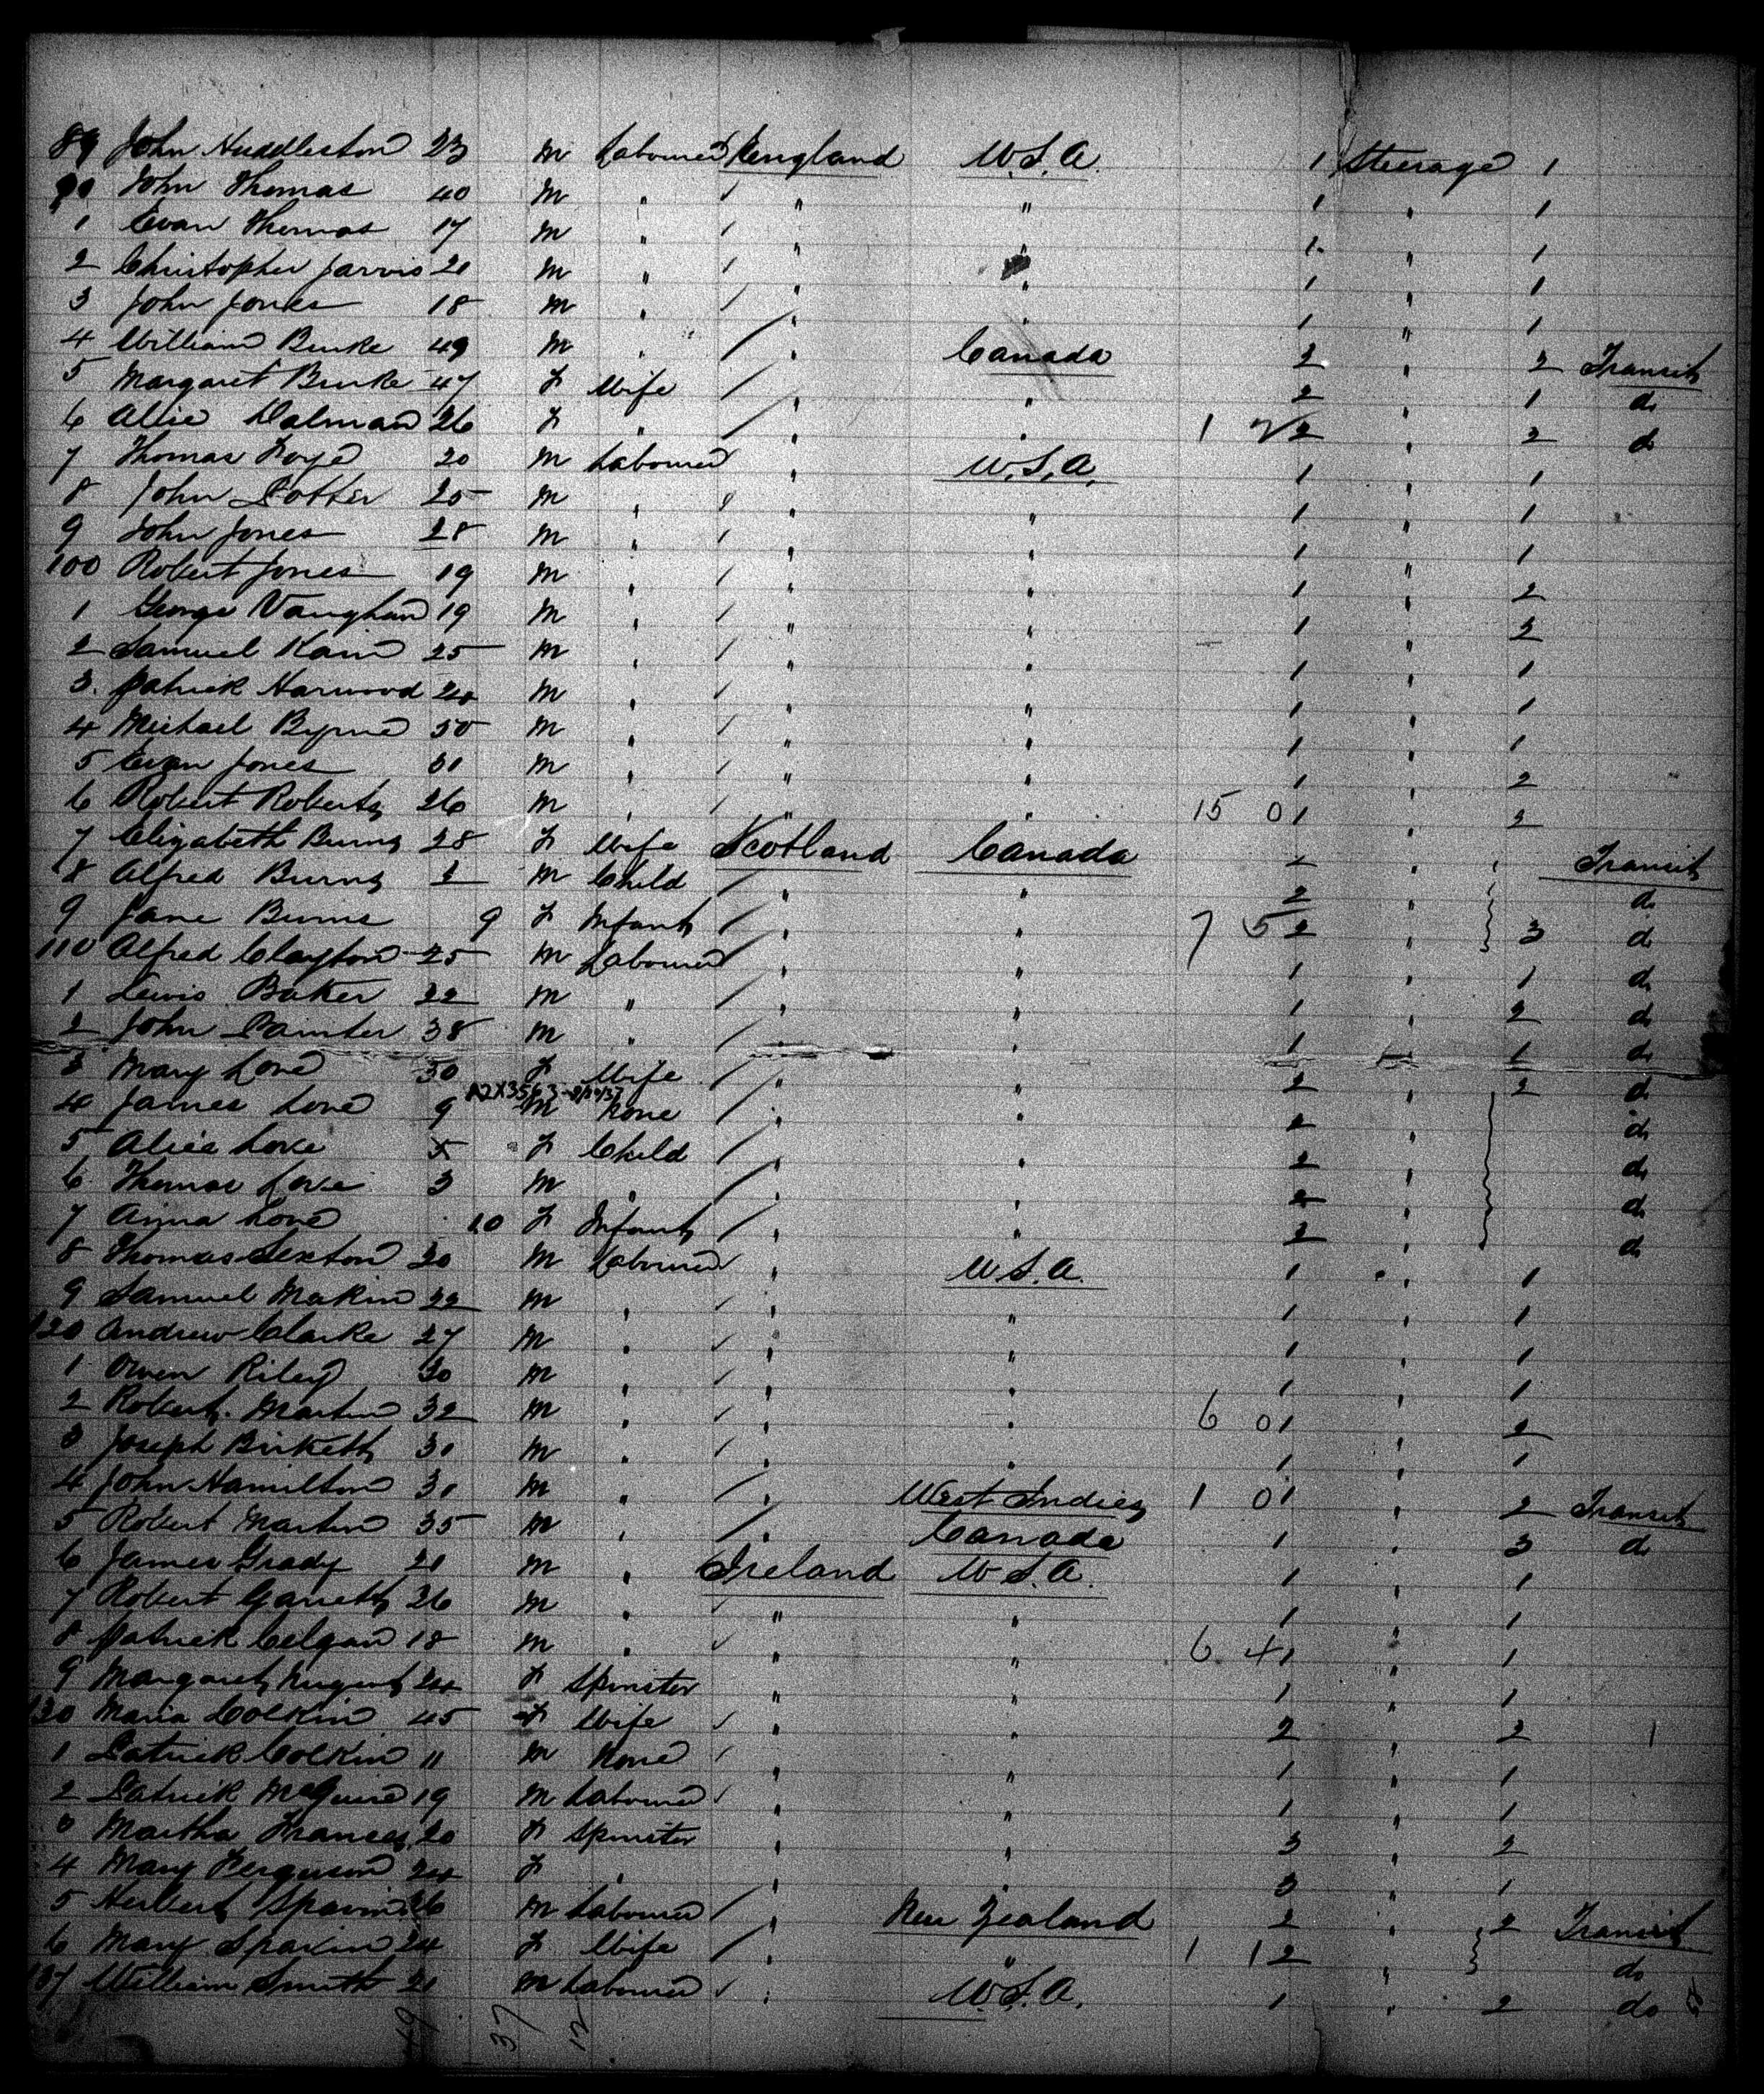 89 John Huddleston 23 m Labourer England U.S.A. 1 Steerage 1
90 John Thomas 40 m " " " 1 " 1
1 Evan Thomas 17 m " " " 1 " 1
2 Christopher Jarvis 21 m " " " 1 " 1
3 John Jones 18 m " " " 1 " 1
4 William Burke 49 m " " Canada 2 " 2 Transit
5 Margaret Burke 47 f Wife " " 2 " 1 do
6 Alice Dalman 26 f " " " 1 2 " 2 do
7 Thomas 20 m Labourer " U.S.A. 1 " 1
8 John Potter 25 m " " " 1 " 1
9 John Jones 28 m " " " 1 " 1
100 Robert Jones 19 m " " " 1 " 2
1 George Vaughan 19 m " " " 1 " 2
2 Samuel Kain 25 m " " " 1 " 1
3 Patrick Harwood m " " " 1 " 1
4 Michael Byrne 30 m " " " 1 " 1
5 Evan Jones 31 m " " " 1 " 2
6 Robert Roberts 26 m " " " 15 0 1 " 2
7 Elizabeth Burns 28 f Wife Scotland Canada 2 " Transit
8 Alfred Burns m Child " " 2 " do
9 Jane Burns 9 f Infant " " 7 5 2 " 3 do
110 Alfred Clayton 25 m Labourer " " 1 " 1 do
1 Lewis Baker 22 m " " " 1 " 2 do
2 John Painter 38 m " " " 1 " 1 do
3 Mary Love 30 f Wife " " 2 " 2 do
4 James Love 9 m None " " 2 " do
5 Alice Love 5 f Child " " 2 " do
6 Thomas Love 3 m " " " 2 " do
7 Anna Love 10 f Infant " " 2 " do
8 Thomas Sexton 20 m Labourer " U.S.A. 1 " 1
9 Samuel Makin 22 m " " " 1 " 1
120 Andrew Clarke 27 m " " " 1 " 1
1 Owen Riley 30 m " " " 1 " 1
2 Robert Martin 32 m " " " 6 0 1 " 2
3 Joseph Birkett 30 m " " " 1 " 1
4 John Hamilton 31 m " " West Indies 1 0 1 " 2 Transit
5 Robert Martin 35 m " " Canada 1 " 3 do
6 James Grady 21 m " Ireland U.S.A. 1 " 1
7 Robert Garrett 26 m " " " 1 " 1
8 Patrick Colgan 18 m " " " 6 4 1 " 1
9 Margaret Nugent 24 f Spinster " " 1 " 1
130 Maria Colkin 45 f Wife " " 2 " 2 1
1 Patrick Colkin 11 m None " " 1 " 1
2 Patrick McGuire 19 m Labourer " " 1 " 1
3 Martha Frances 20 f Spinster " " 3 " 2
4 Mary Ferguson 24 f " " " 3 " 1
5 Herbert Spavin 26 m Labourer " New Zealand 2 " 2 Transit
6 Mary Spavin 24 f Wife " " 1 1 2 " do
137 William Smith 21 m Labourer " U.S.A. 1 " 2 do
49 37 12